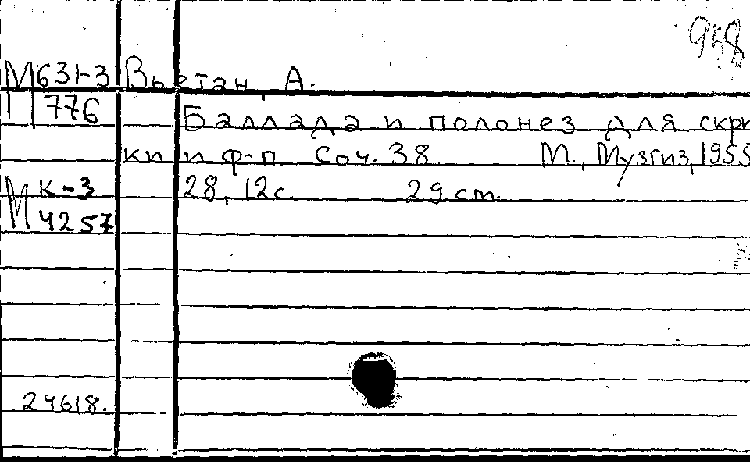 958
М 631-3 Вьетан, А.
776 Баллада и полонез для скрип
ки и ф-п. Соч. 38 М., Музгиз, 1955
М К-3 28, 12 с. 29 cm.
4257
24618.